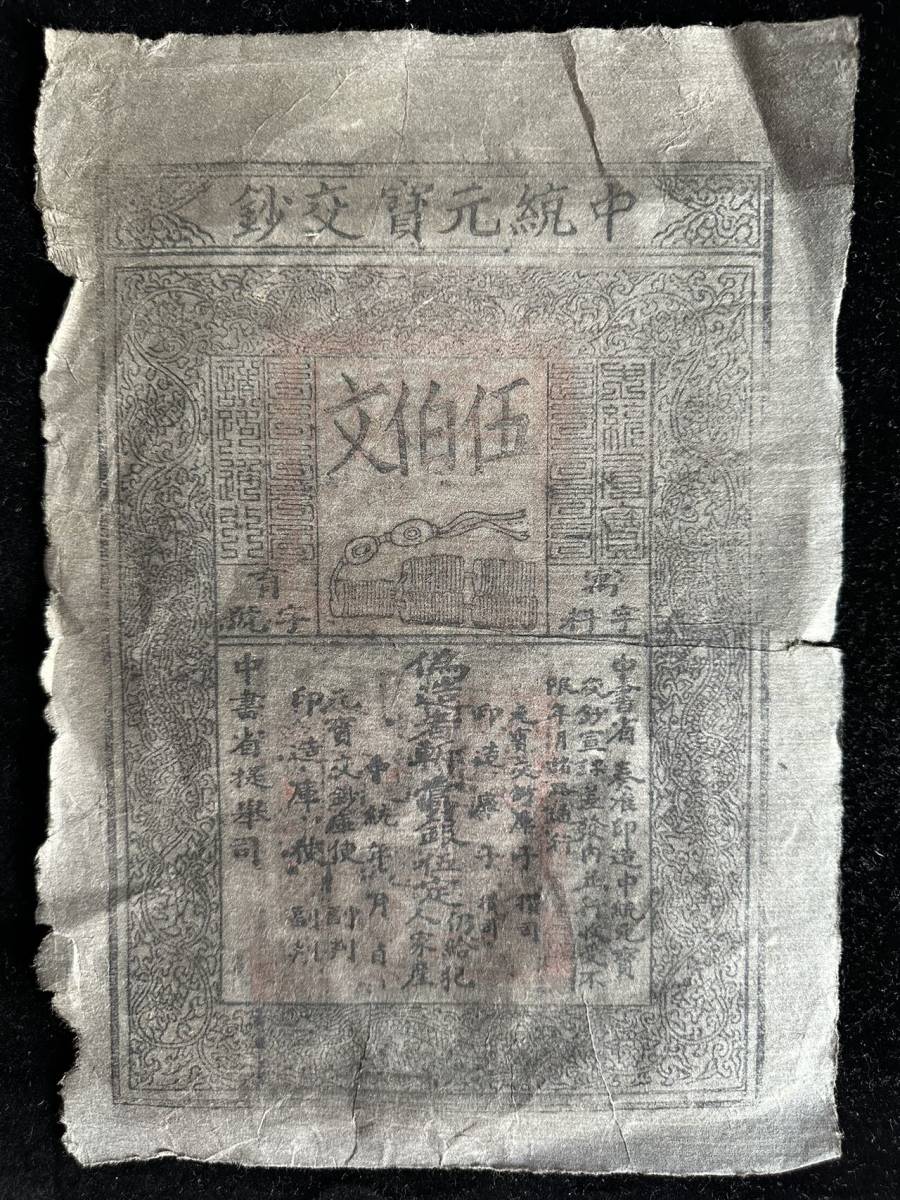 中統元寶交鈔
伍伯文
中統元寶
諸路通行
字料
字號
中書省奏准印造中統元寶
交鈔宣課差發內並行收受不
限年月諸路通行
元寶交鈔庫子 攢司
印造庫子 攢司
偽造者斬賞銀伍定仍給犯
人家産
中統 年 月 日
元寶交鈔庫使副判
印造庫使副判
中書省提舉司